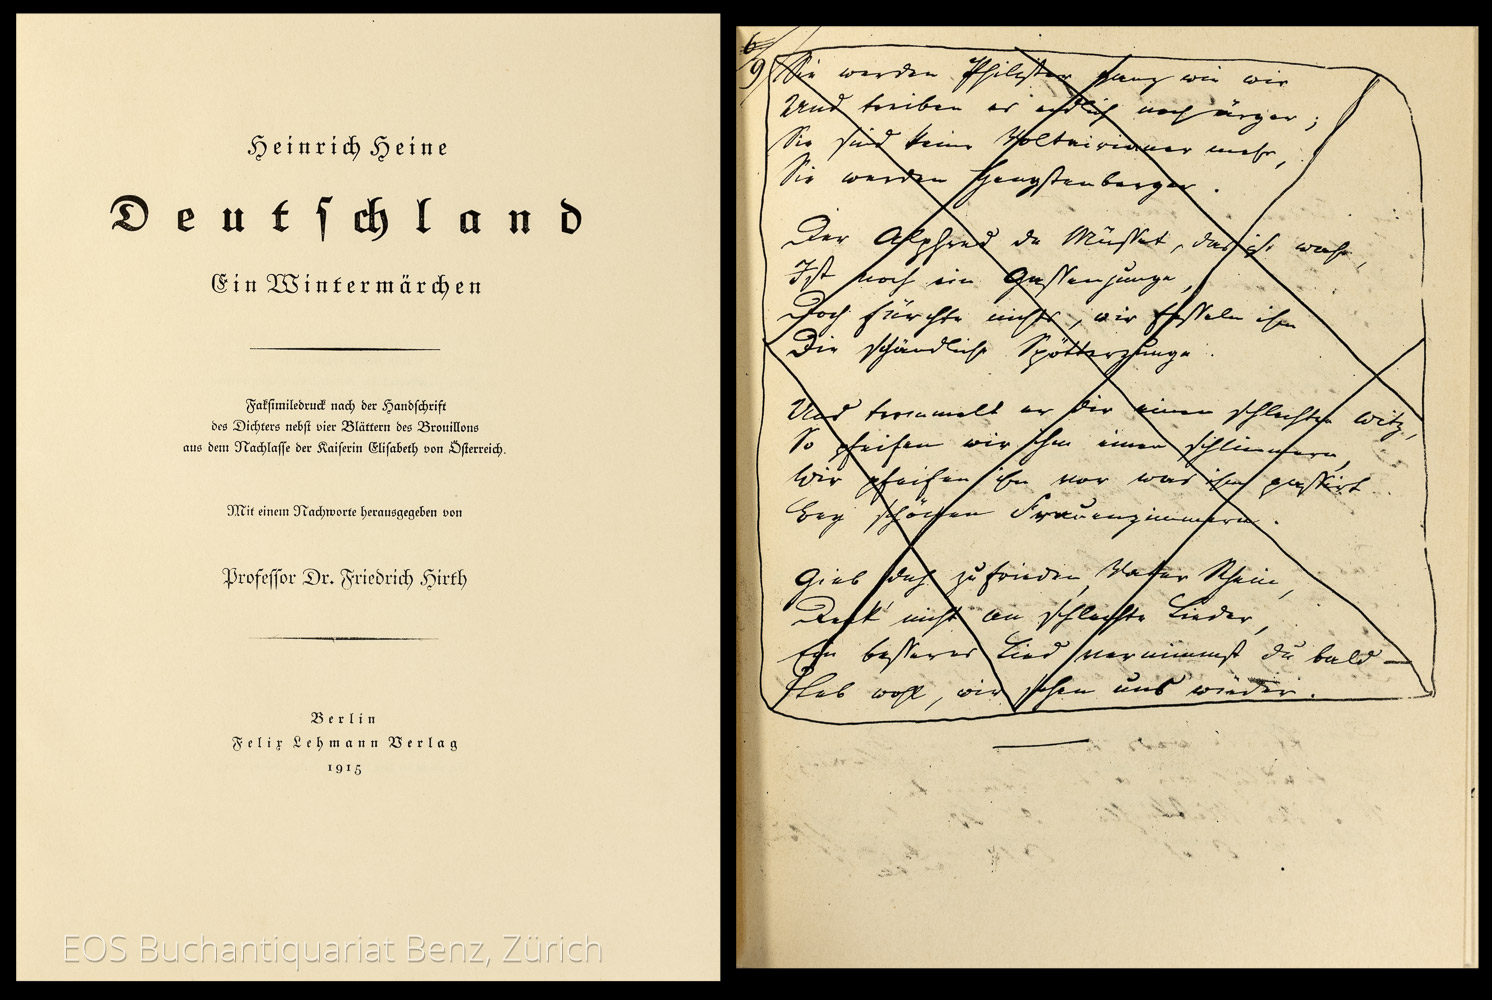 Heinrich Heine
Deutschland
Ein Wintermärchen
Faksimiledruck nach der Handschrift
des Dichters nebst vier Blättern des Brouillons
aus dem Nachlasse der Kaiserin Elisabeth von Österreich.
Mit einem Nachworte herausgegeben von
Professor Dr. Friedrich Hirth
Berlin
Felix Lehmann Verlag
1915
EOS Buchantiquariat Benz, Zürich
Sie werden Philister ganz wie wir
Und treiben es endlich noch ärger;
Sie sind keine Voltairianer mehr,
Sie werden Hengstenberger.
Der Alphred de Müsset, das ist wahr,
Ist noch ein Gassenjunge,
Doch fürchte nichts, wir fesseln ihm
Die schändliche Spötterzunge.
Und trommelt er dir einen schlechten Witz,
So pfeifen wir ihm einen schlimmern,
Wir pfeifen ihm vor was ihm passirt
Bey schönen Frauenzimmern.
Gieb dich zufrieden, Vater Rhein,
Denk' nicht an schlechte Lieder,
Ein besseres Lied vernimmst du bald —
Leb wohl, wir sehen uns wieder.